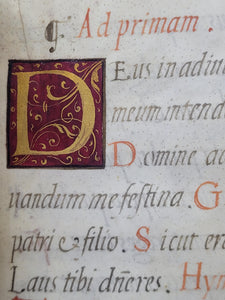 ¶ Ad primam.
DEus in adiu
meum intend
Domine ad
uandum me festina. G
patri & filio. Sicut er
Laus tibi dñe res. Hym